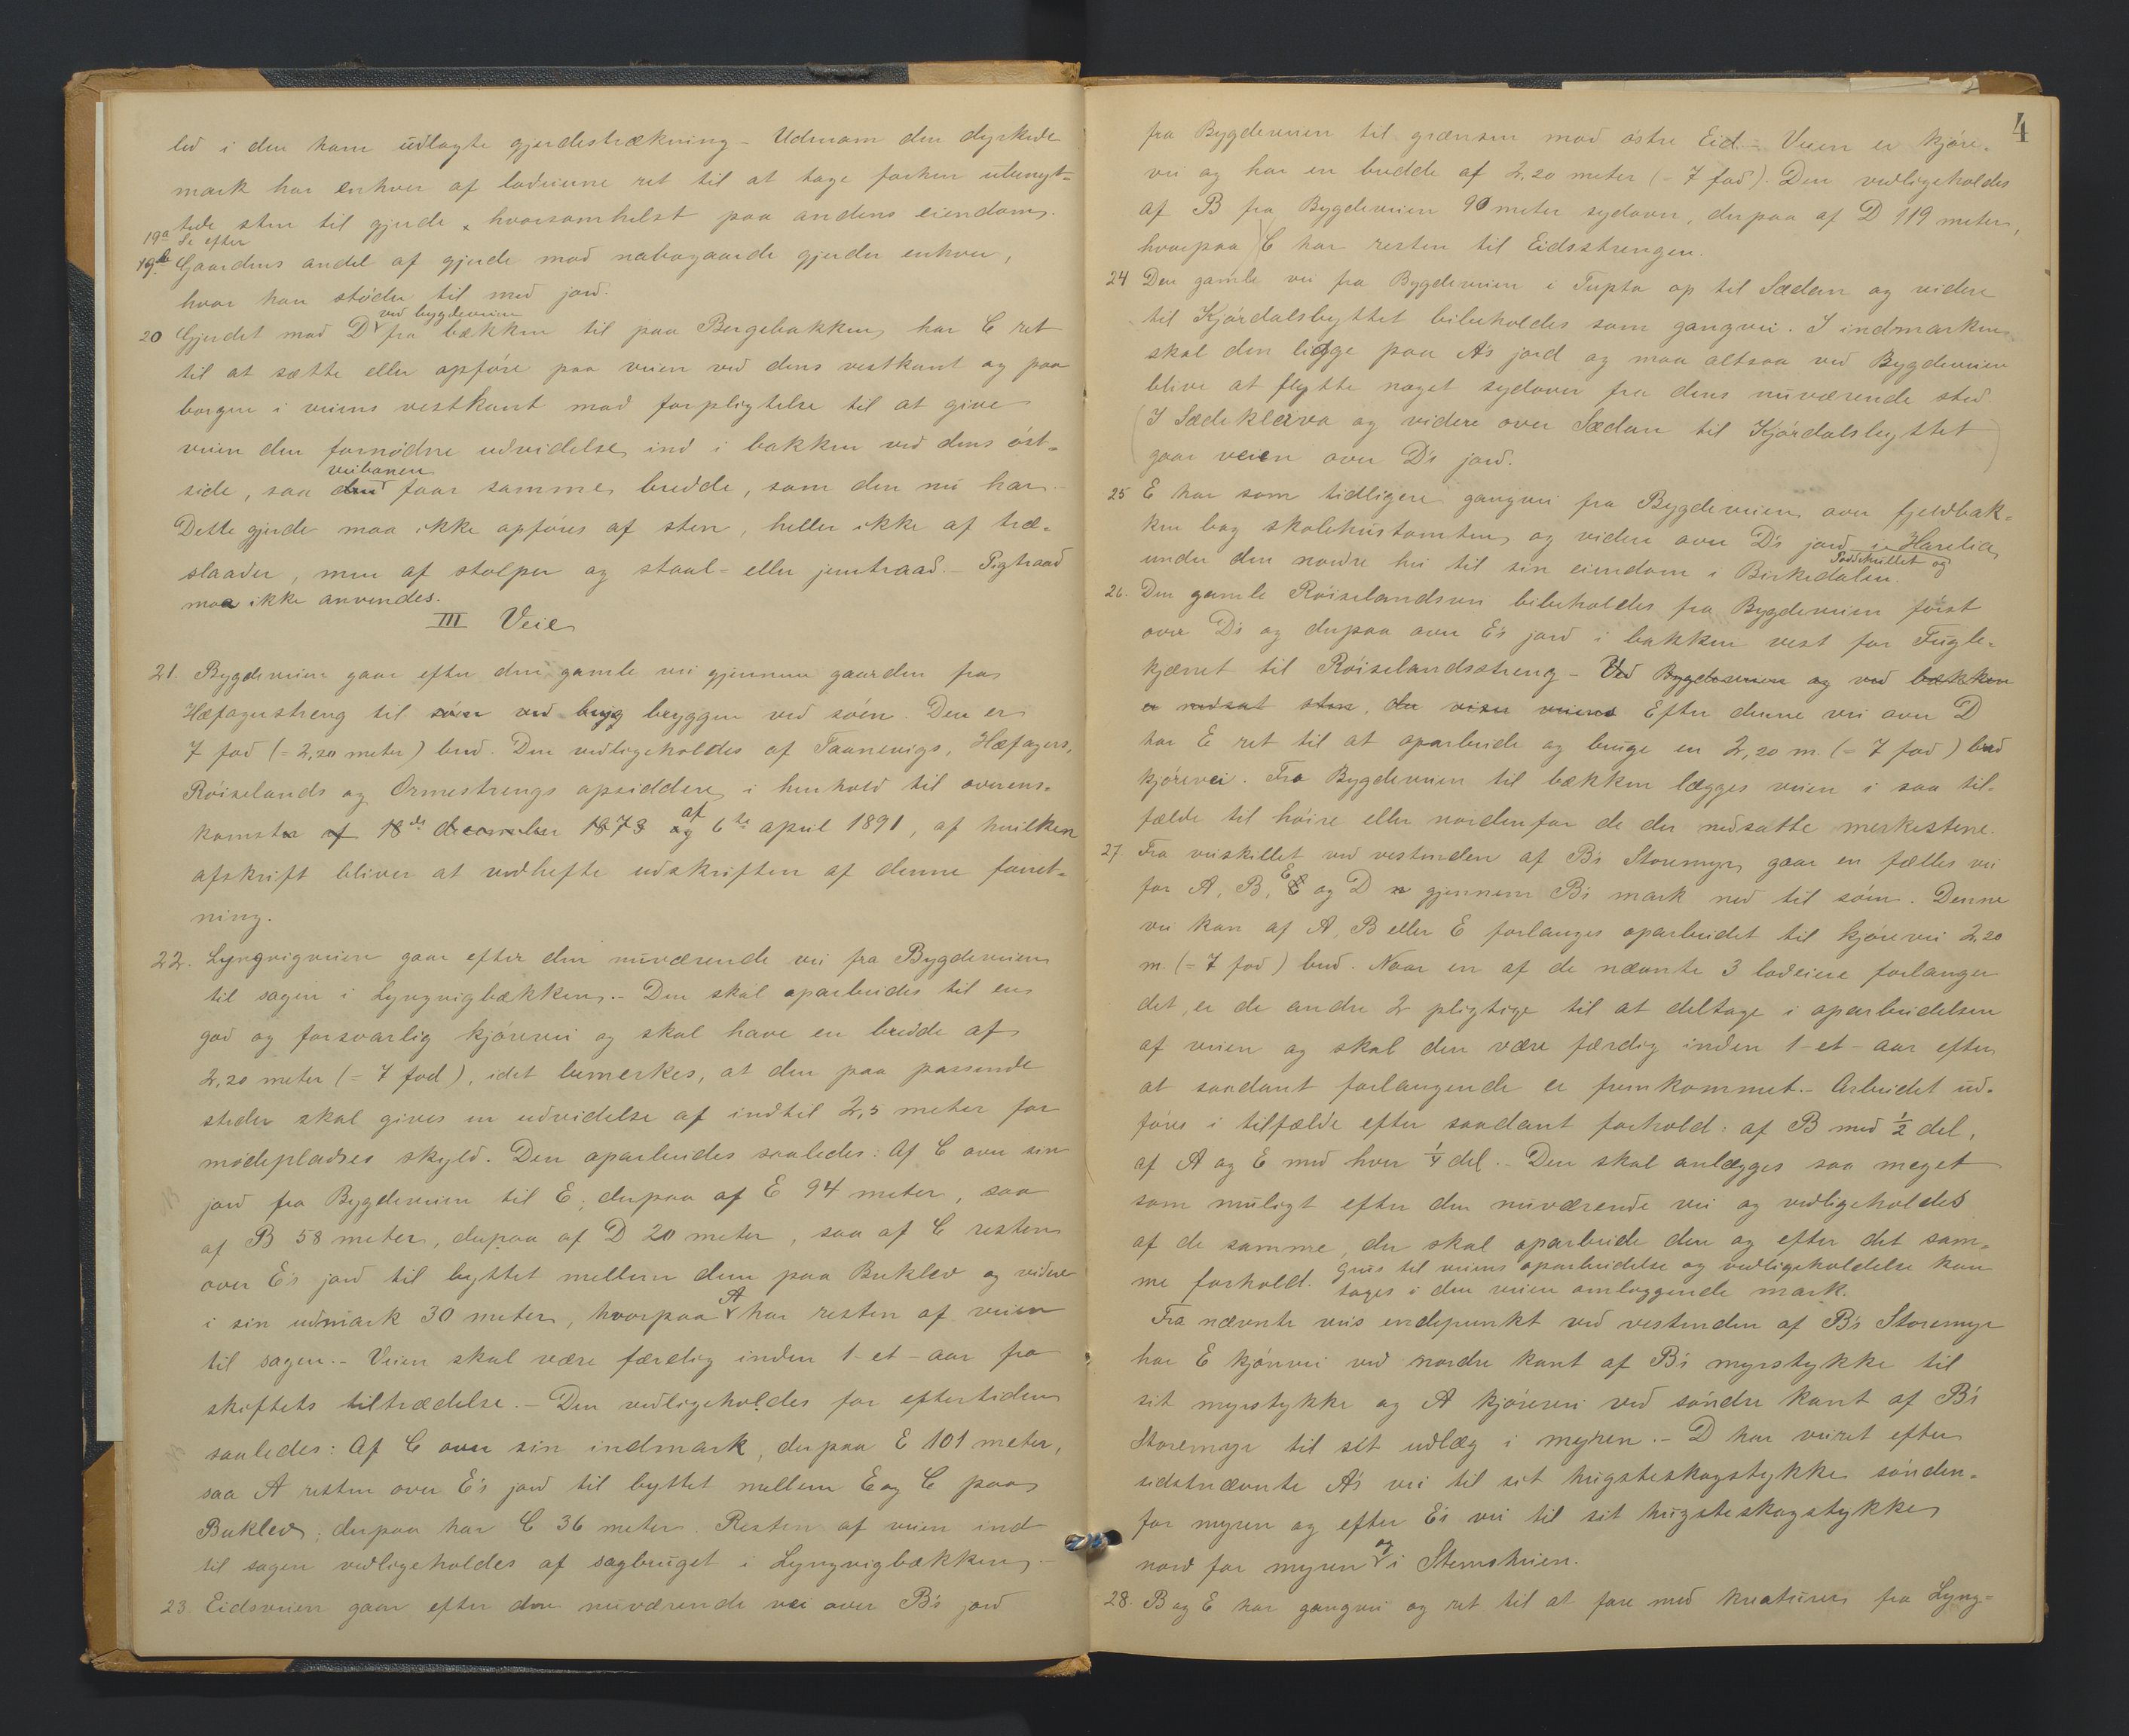 led i den ham udlagte gjerdestrækning - Udenom den dyrkede
mark har enhver af lodeierne ret til at tage forhen ubenyt-
tede sten til gjerde, hvorsomhelst paa andens eiendom.
19a Se efter
19b Gaardens andel af gjerde mod nabogaarde gjerder enhver,
hvor han støder til med jord.
ved bygdeveien
20 Gjerdet mod D fra bækken til paa Bergebakken, har C ret
til at sætte eller opføre paa veien ved dens vestkant og paa
bergen i veiens vestkant mod forpligtelse til at give
veien den fornødne udvidelse ind i bakken ved dens øst-
veibanen
side, saa den faar samme bredde, som den nu har.-
Dette gjerde maa ikke opføres af sten, heller ikke af træ-
slaader, men af stolper og staal- eller jerntraad.- Pigtraad
maa ikke anvendes.
III Veie
21. Bygdeveien gaar efter den gamle vei gjennem gaarden fra
Hæfagerstreng til søen ved bryg bryggen ved søen. Den er
7 fod (= 2,20 meter) bred. Den vedligeholdes af Taanevigs, Hæfagers,
Røiselands og Ormestrengs opsiddere i henhold til overens-
komster af 18de december 1873 og af 6te april 1891, af hvilken
afskrift bliver at vedhefte udskriften af denne forret-
ning.
22. Lyngvigveien gaar efter den nuværende vei fra Bygdeveien
til sagen i Lyngvigbækken.- Den skal oparbeides til en
god og forsvarlig kjørevei og skal have en bredde af
2,20 meter (= 7 fod), idet bemerkes, at den paa passende
steder skal gives en udvidelse af indtil 2,5 meter for
mødepladses skyld. Den oparbeides saaledes: Af C over sin
jord fra Bygdeveien til E, derpaa af E 94 meter, saa
af B 58 meter, derpaa af D 20 meter, saa af C resten
over E's jord til byttet mellem dem paa Buklev og videre
i sin udmark 30 meter, hvorpaa A har resten af veien
til sagen.- Veien skal være færdig inden 1-et-aar fra
skiftets tiltrædelse.- Den vedligeholdes for eftertiden
saaledes: Af C over sin indmark, derpaa E 101 meter,
saa A resten over E's jord til byttet mellem E og C paa
Buklev; derpaa har C 36 meter. Resten af veien ind
til sagen vedligeholdes af sagbruget i Lyngvigbækken.-
23. Eidsveien gaar efter den nuværende vei over B's jord
4
fra Bygdeveien til grænsen mod østre Eid.- Veien er kjøre-
vei og har en bredde af 2,20 meter (= 7 fod). Den vedligeholdes
af B fra Bygdeveien 90 meter sydover, derpaa af D 119 meter,
hvorpaa C har resten til Eidsstrengen.
24 Den gamle vei fra Bygdeveien i Tupta op til Sædan og videre
til Kjørdalsbyttet bibeholdes som gangvei. I indmarken
skal den ligge paa A's jord og maa altsaa ved Bygdeveien
blive at flytte noget sydover fra dens nuværende sted.
(I Sædekleiva og videre over Sædan til Kjørdalsbyttet
gaar veien over D's jord.)
25 E har som tidligere gangvei fra Bygdeveien over fjeldbak-
ken bag skolehustomten og videre over D's jord i Harelia
under den nordre hei til sin eiendom i Birkedalen.
26. Den gamle Røiselandsvei bibeholdes fra Bygdeveien først
over D's og derpaa over E's jord i bakken vest for Fugle-
kjærret til Røiselandsstreng - Ved Bygdeveien og ved bækken
er nedsat sten, der viser veiens Efter denne vei over D
har E ret til at oparbeide og bruge en 2,20 m. (= 7 fod) bred
kjørevei. Fra Bygdeveien til bækken lægges veien i saa til-
fælde til høire eller nordenfor de der nedsatte merkestene.
27. Fra veiskillet ved vestenden af B's Storemyr gaar en fælles vei
for A, B, E og D gjennem B's mark ned til søen. Denne
vei kan af A, B eller E forlanges oparbeidet til kjørevei 2,20
m. (= 7 fod) bred. Naar en af de nævnte 3 lodeiere forlanger
det, er de andre 2 pligtige til at deltage i oparbeidelsen
af veien og skal den være færdig inden 1-et-aar efter
at saadant forlangende er fremkommet.- Arbeidet ud-
føres i tilfælde efter saadant forhold: af B med 1/2 del,
af A og E med hver 1/4 del.- Den skal anlægges saa meget
som muligt efter den nuværende vei og vedligeholdes
af de samme, der skal oparbeide den og efter det sam-
me forhold. Grus til veiens oparbeidelse og vedligeholdelse kan
tages i den veien omliggende mark.
Fra nævnte veis endepunkt ved vestenden af B's Storemyr
har E kjørevei ved nordre kant af B's myrstykke til
sit myrstykke og A kjørevei ved søndre kant af B's
Storemyr til sit udlæg i myren.- D har veiret efter
sidstnævnte A's vei til sit hugsteskogstykke sønden-
for myren og efter E's vei til sit hugsteskogstykke
nord for myren og i Stemsheien.
28. B og E har gangvei og ret til at fare med kreaturer fra Lyng-